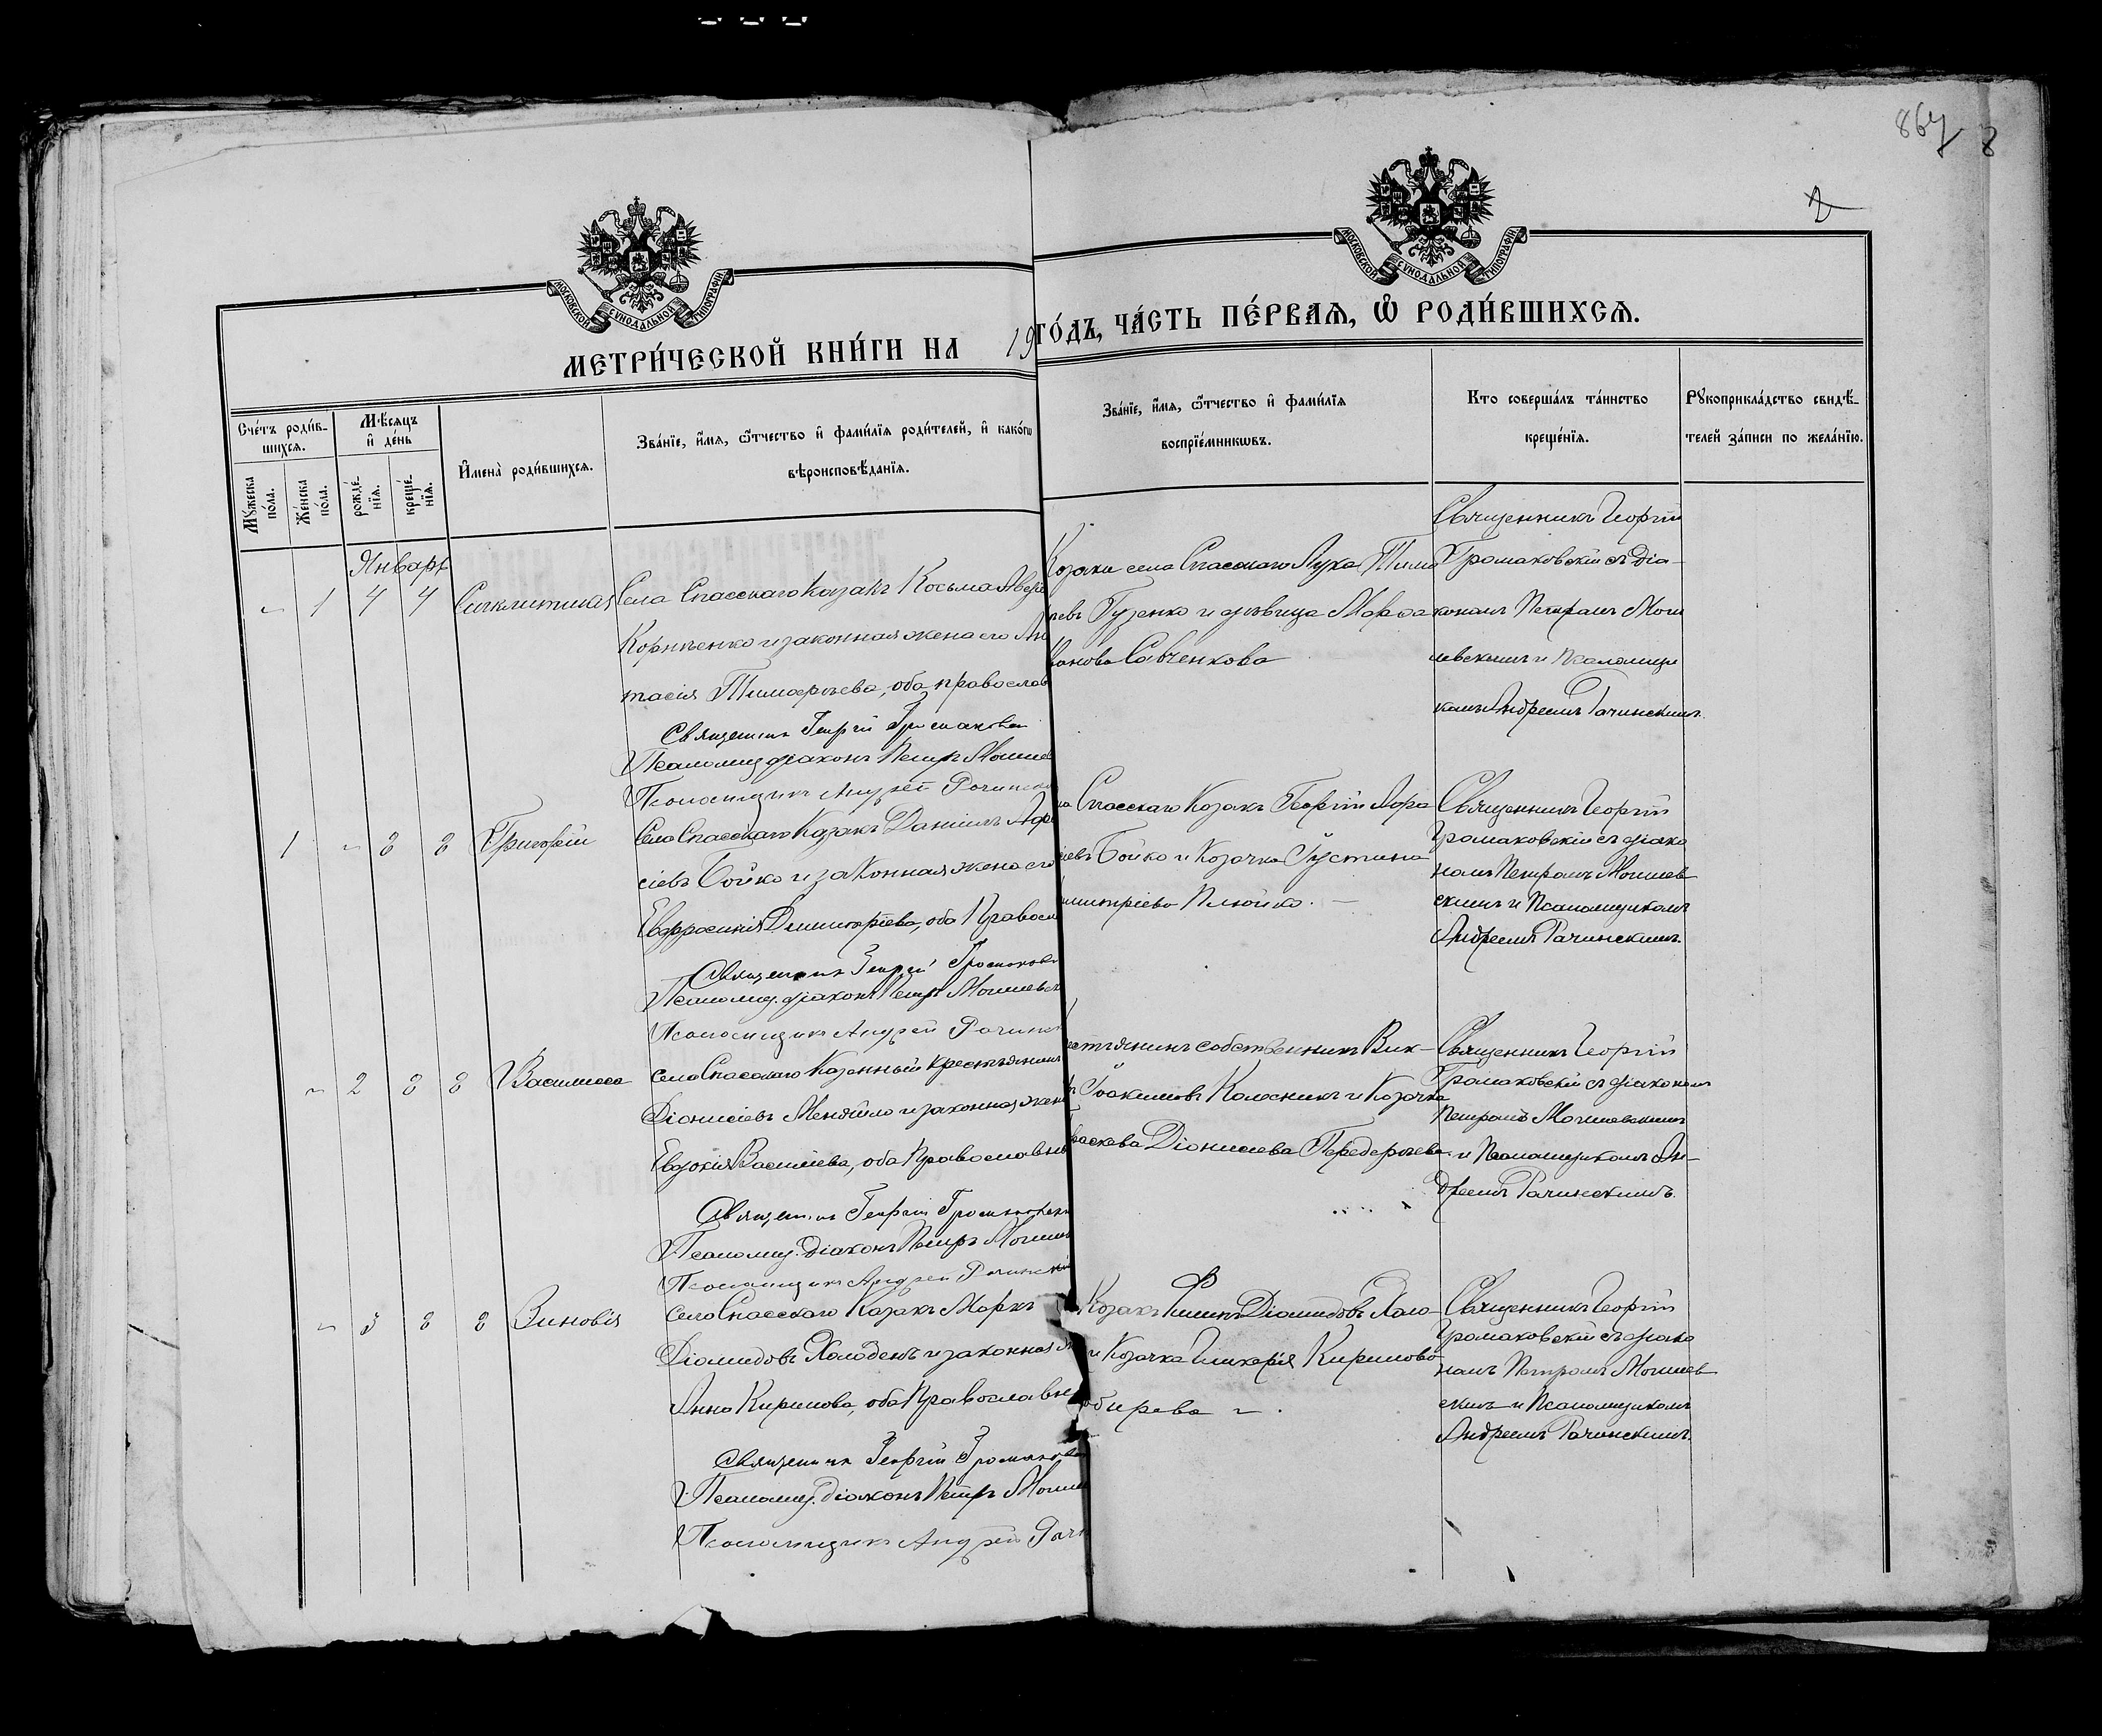 867 8
2
МОСКОВСКОЙ СѴНОДАЛЬНОЙ ТИПОГРАФІИ
МОСКОВСКОЙ СѴНОДАЛЬНОЙ ТИПОГРАФІИ
МЕТРИ́ЧЕСКОЙ КНИ́ГИ НА 19 ГО́ДЪ, ЧА́СТЬ ПЕ́РВАѦ, Ѡ҆ РОДИ́ВШИХСѦ.
Сче́тъ роди́в-
шихсѧ.
Мꙋ́жеска
по́ла.
Же́нска
по́ла.
Мѣ́сѧцъ
и҆ де́нь
рожде́-
нїѧ.
креще́-
нїѧ.
И҆мена̀ роди́вшихсѧ.
Зва́нїе, и҆́мѧ, ѻ҆́тчество и҆ фами́лїѧ роди́телей, и҆ како́гѡ
вѣроисповѣ́данїѧ.
Зва́нїе, и҆́мѧ, ѻ҆́тчество и҆ фами́лїѧ
воспрїе́мникѡвъ.
Кто соверша́лъ та́инство
креще́нїѧ.
Рꙋкоприкла́дство свидѣ́-
телей за́писи по жела́нїю.
Январь
~ 1 4 4 Синклитикія
Села Спасскаго Козакъ Косьма Авер
Корніенко и законная жена его Ан
тасія Тимофѣева, оба православ
Священникъ Георгій Громаковск
Псаломщ. діаконъ Петръ Могилев
Псаломщикъ Андрей Рачинск
Козаки села Спасскаго Лука Тимо
евъ Гузенко и дѣвица Марфа
ванова Савченкова
Священникъ Георгій
Громаковскій съ діа-
кономъ Петромъ Моги
левскимъ и Псаломщи
комъ Андреемъ Рачинскимъ.
1 ~ 8 8 Григорій
Села Спасскаго Козакъ Даніилъ Афа
сіевъ Бойко и законная жена его
Евфросинія Димитріева, оба Правосл
Священникъ Георгій Громаковс
Псаломщ. діаконъ Петръ Могилевс
Псаломщикъ Андрей Рачинск
ла Спасскаго Козакъ Георгій Афа
іевъ Бойко и Козачка Іустина
имитріева Плюйко. —
Священникъ Георгій
Громаковскій съ діако
номъ Петромъ Могилев
скимъ и Псаломщикомъ
Андреемъ Рачинскимъ.
~ 2 8 8 Василисса
Села Спасскаго Казенный крестьянинъ
Діонисіевъ Меняйло и законная жена
Евдокія Василіева, оба Православны
Священникъ Георгій Громаковск
Псаломщ. діаконъ Петръ Могилев
Псаломщикъ Андрей Рачинскій
естьянинъ собственникъ Вик-
ъ Іоакимовъ Колесникъ и Козачка
аскева Діонисіева Передеріева.
Священникъ Георгій
Громаковскій съ діакономъ
Петромъ Могилевскимъ
и Псаломщикомъ Ан-
дреемъ Рачинскимъ.
~ 3 8 8 Зиновія
Села Спасскаго Козакъ Маркъ
Діомидовъ Холоденъ и законная ж
Анна Кирилова, оба Православн
Священникъ Георгій Громаков
Псаломщ. діаконъ Петръ Могиле
Псаломщикъ Андрей Рачи
Козакъ Діомидовъ Холо-
и Козачка Гликерія Кирилова
обирева ~.
Священникъ Георгій
Громаковскій съ діако
номъ Петромъ Могилев
скимъ и Псаломщикомъ
Андреемъ Рачинскимъ.